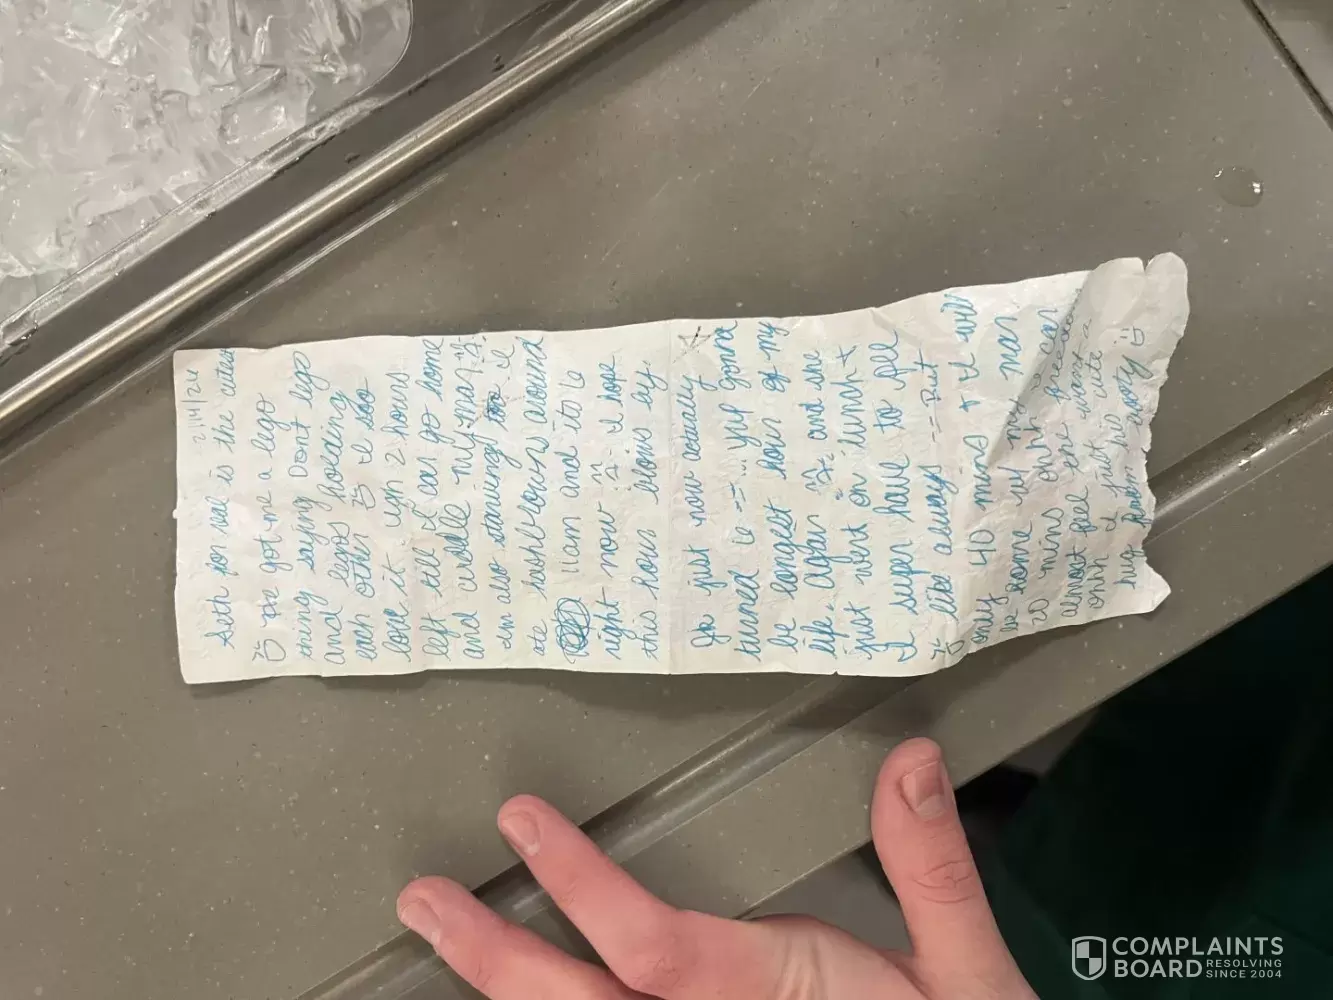 2/14/24
Seth for real is the cutest
he got me a lego
thing saying Dont lego
and legos holding
each other I soo
love it. Ugh 2 hours
left till I can go home
and cuddle my man
Im also starving I
ate hashbrowns around
11am and its 6
right now I hope
this hour blows by
Ok just now actually
turned 6 -- yup gonna
be longest hour of my
life. Again and she
just went on lunch +
I super have to pee
like always --- but
only 40 mins + I will
be home w/ my man
20 mins
almost pee the was a
ohhh I cute
hug him
COMPLAINTS
BOARD RESOLVING
SINCE 2004